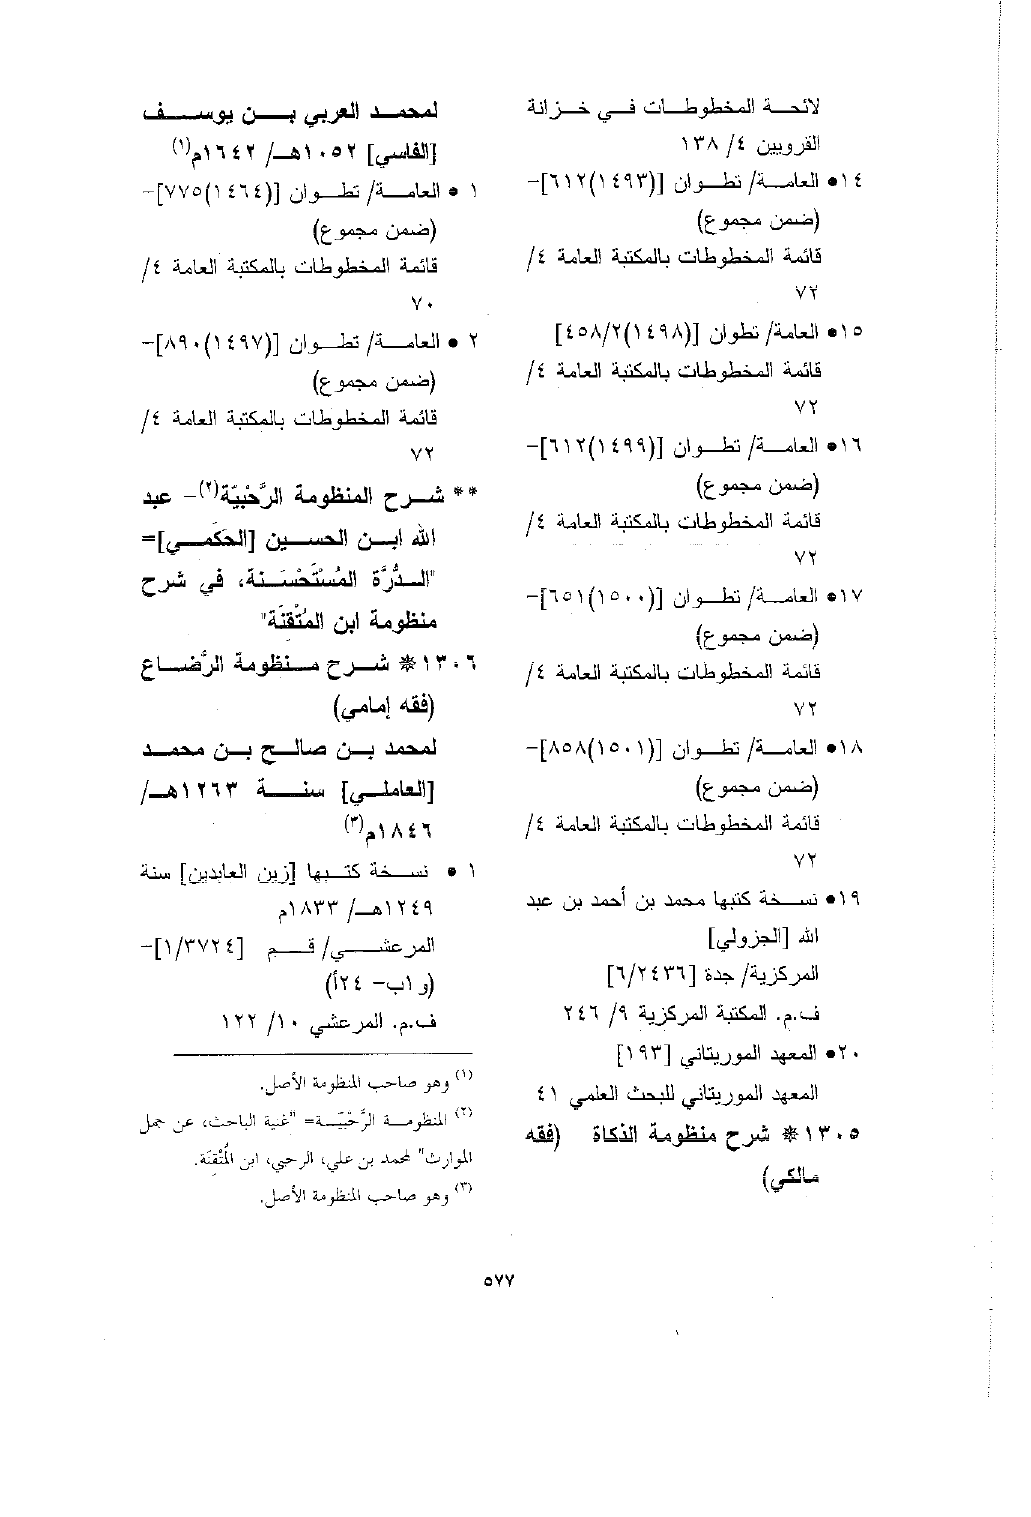 لائحة المخطوطات في خزانة
القرويين ٤/ ١٣٨
١٤• العامة/ تطوان [(١٤٩٣)٦١٢]-
(ضمن مجموع)
قائمة المخطوطات بالمكتبة العامة ٤/
٧٢
١٥• العامة/ تطوان [(١٤٩٨)٤٥٨/٢]
قائمة المخطوطات بالمكتبة العامة ٤/
٧٢
١٦• العامة/ تطوان [(١٤٩٩)٦١٢]-
(ضمن مجموع)
قائمة المخطوطات بالمكتبة العامة ٤/
٧٢
١٧• العامة/ تطوان [(١٥٠٠)٦٥١]-
(ضمن مجموع)
قائمة المخطوطات بالمكتبة العامة ٤/
٧٢
١٨• العامة/ تطوان [(١٥٠١)٨٥٨]-
(ضمن مجموع)
قائمة المخطوطات بالمكتبة العامة ٤/
٧٢
١٩• نسخة كتبها محمد بن أحمد بن عبد
الله [الجزولي]
المركزية/ جدة [٦/٢٤٣٦]
ف.م. المكتبة المركزية ٩/ ٢٤٦
٢٠• المعهد الموريتاني [١٩٣]
المعهد الموريتاني للبحث العلمي ٤١
١٣٠٥* شرح منظومة الذكاة (فقه
مالكي)
لمحمد العربي بن يوسف
[الفاسي] ١٠٥٢هـ/ ١٦٤٢م(١)
١ • العامة/ تطوان [(١٤٦٤)٧٧٥]-
(ضمن مجموع)
قائمة المخطوطات بالمكتبة العامة ٤/
٧٠
٢ • العامة/ تطوان [(١٤٩٧)٨٩٠]-
(ضمن مجموع)
قائمة المخطوطات بالمكتبة العامة ٤/
٧٢
** شرح المنظومة الرَّحْبيّة(٢)- عبد
الله ابن الحسين [الحكَمي]=
"الدُّرَّة المُسْتَحْسَنة، في شرح
منظومة ابن المُتْقِنَة"
١٣٠٦* شرح منظومة الرَّضاع
(فقه إمامي)
لمحمد بن صالح بن محمد
[العاملي] سنة ١٢٦٣هـ/
١٨٤٦م(٣)
١ • نسخة كتبها [زين العابدين] سنة
١٢٤٩هـ/ ١٨٣٣م
المرعشي/ قم [١/٣٧٢٤]-
(و١ب- ٢٤أ)
ف.م. المرعشي ١٠/ ١٢٢
(١) وهو صاحب المنظومة الأصل.
(٢) المنظومة الرَّحْبيّة= "غنية الباحث، عن جمل
الموارث" لمحمد بن علي، الرحبي، ابن المُتْقِنَة.
(٣) وهو صاحب المنظومة الأصل.
٥٧٧